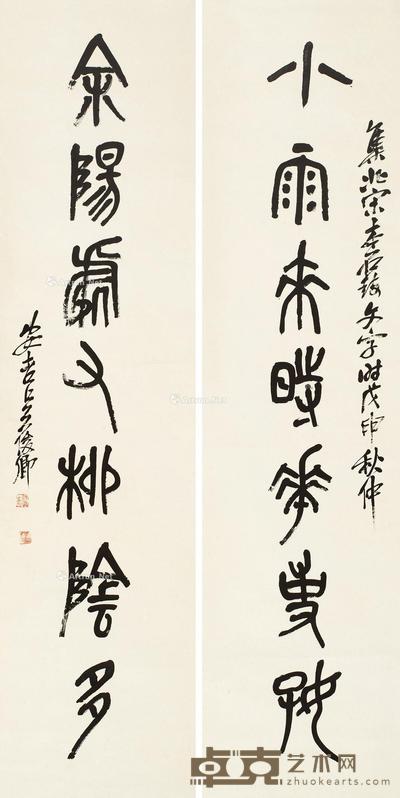 小雨來時華好
集北宋本石鼓文字時戊申秋仲
余陽處又柳陰多
安吉吳俊卿
卓克艺术网
zhuokearts.com
Artron.Net